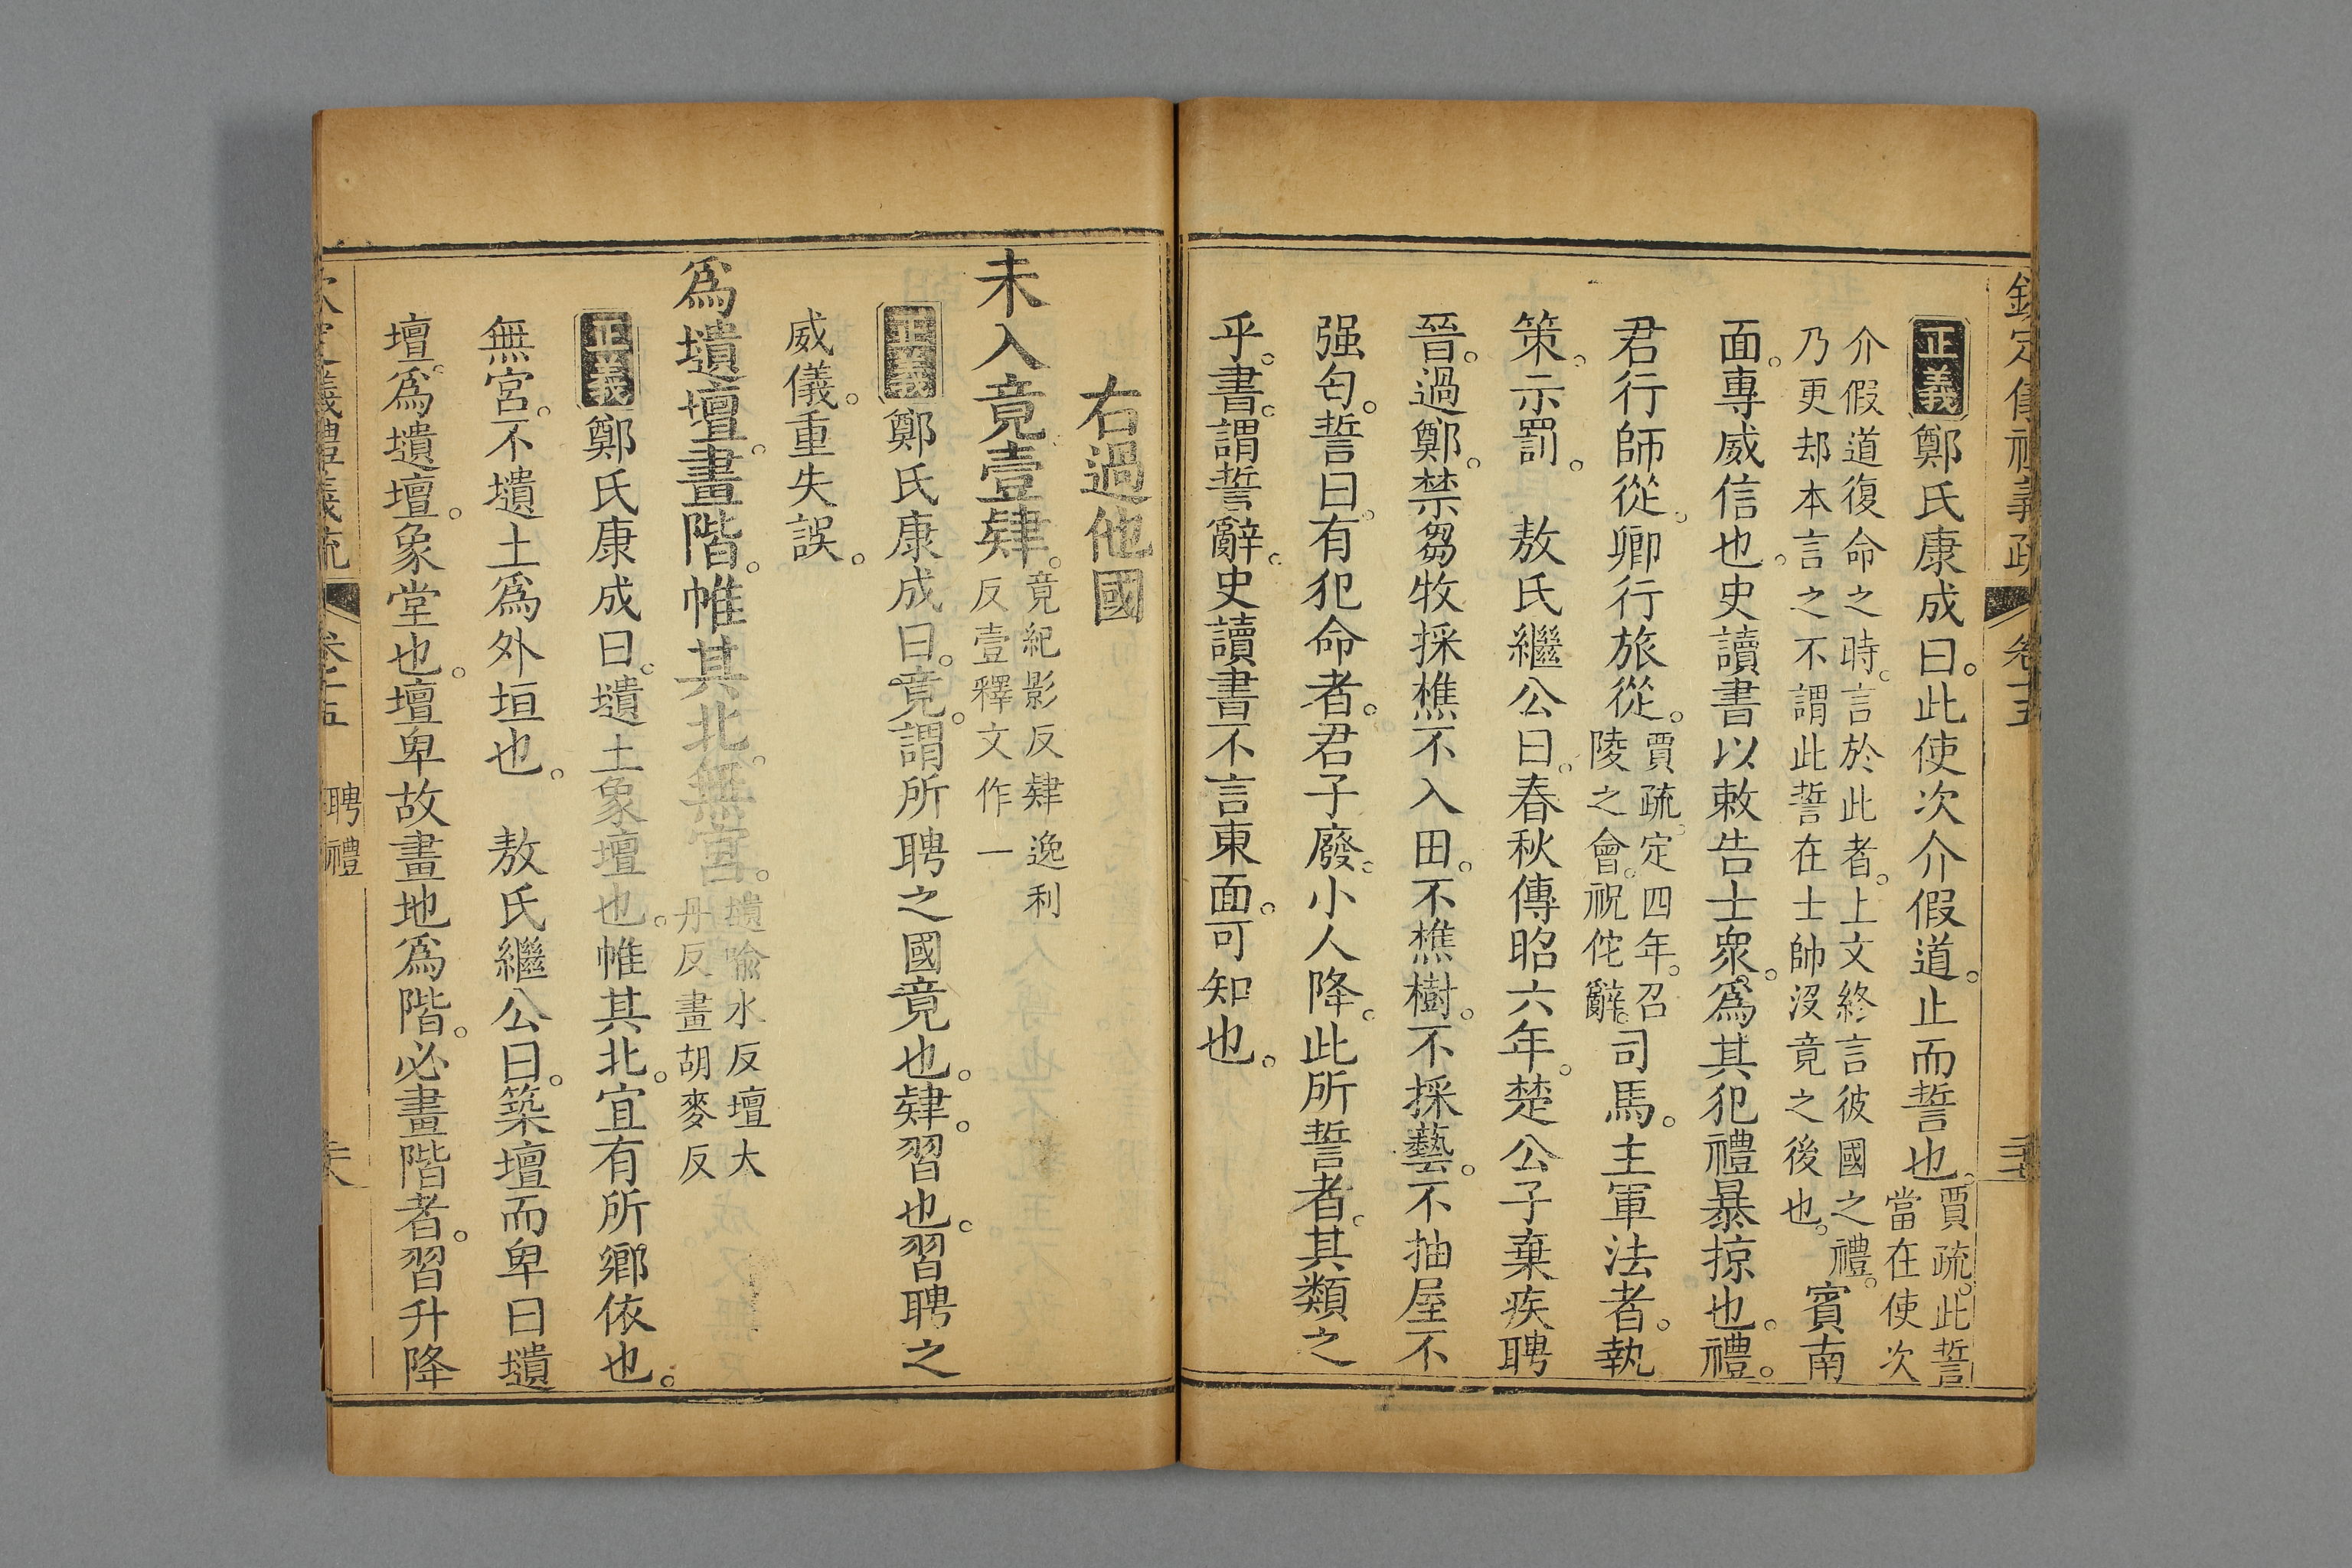 正義鄭氏康成曰。此使次介假道。止而誓也。賈疏。此誓當在使次
介假道復命之時。言於此者。上文終言彼國之禮。乃更却本言之不謂此誓在士帥沒竟之後也。賓南
面。專威信也。史讀書以敕告士衆。爲其犯禮暴掠也。禮。
君行師從。卿行旅從。賈疏。定四年。召陵之會。祝佗辭。司馬。主軍法者。執
策。示罰。敖氏繼公曰。春秋傳昭六年。楚公子棄疾聘
晉。過鄭。禁芻牧採樵不入田。不樵樹。不採蓺。不抽屋不
强匄。誓曰。有犯命者。君子廢。小人降。此所誓者。其類之
乎。書。謂誓辭。史讀書不言東面。可知也。
右過他國
未入竟壹肄。竟紀影反肄逸利反壹釋文作一
正義鄭氏康成曰。竟。謂所聘之國竟也。肄。習也。習聘之
威儀。重失誤。
爲壝壇。畫階。帷其北。無宮。壝喩水反壇大丹反畫胡麥反
正義鄭氏康成曰。壝土象壇也。帷其北。宜有所鄉依也。
無宮。不壝土爲外垣也。敖氏繼公曰。築壇而卑曰壝
壇。爲壝壇。象堂也。壇卑故畫地爲階。必畫階者。習升降
聘禮